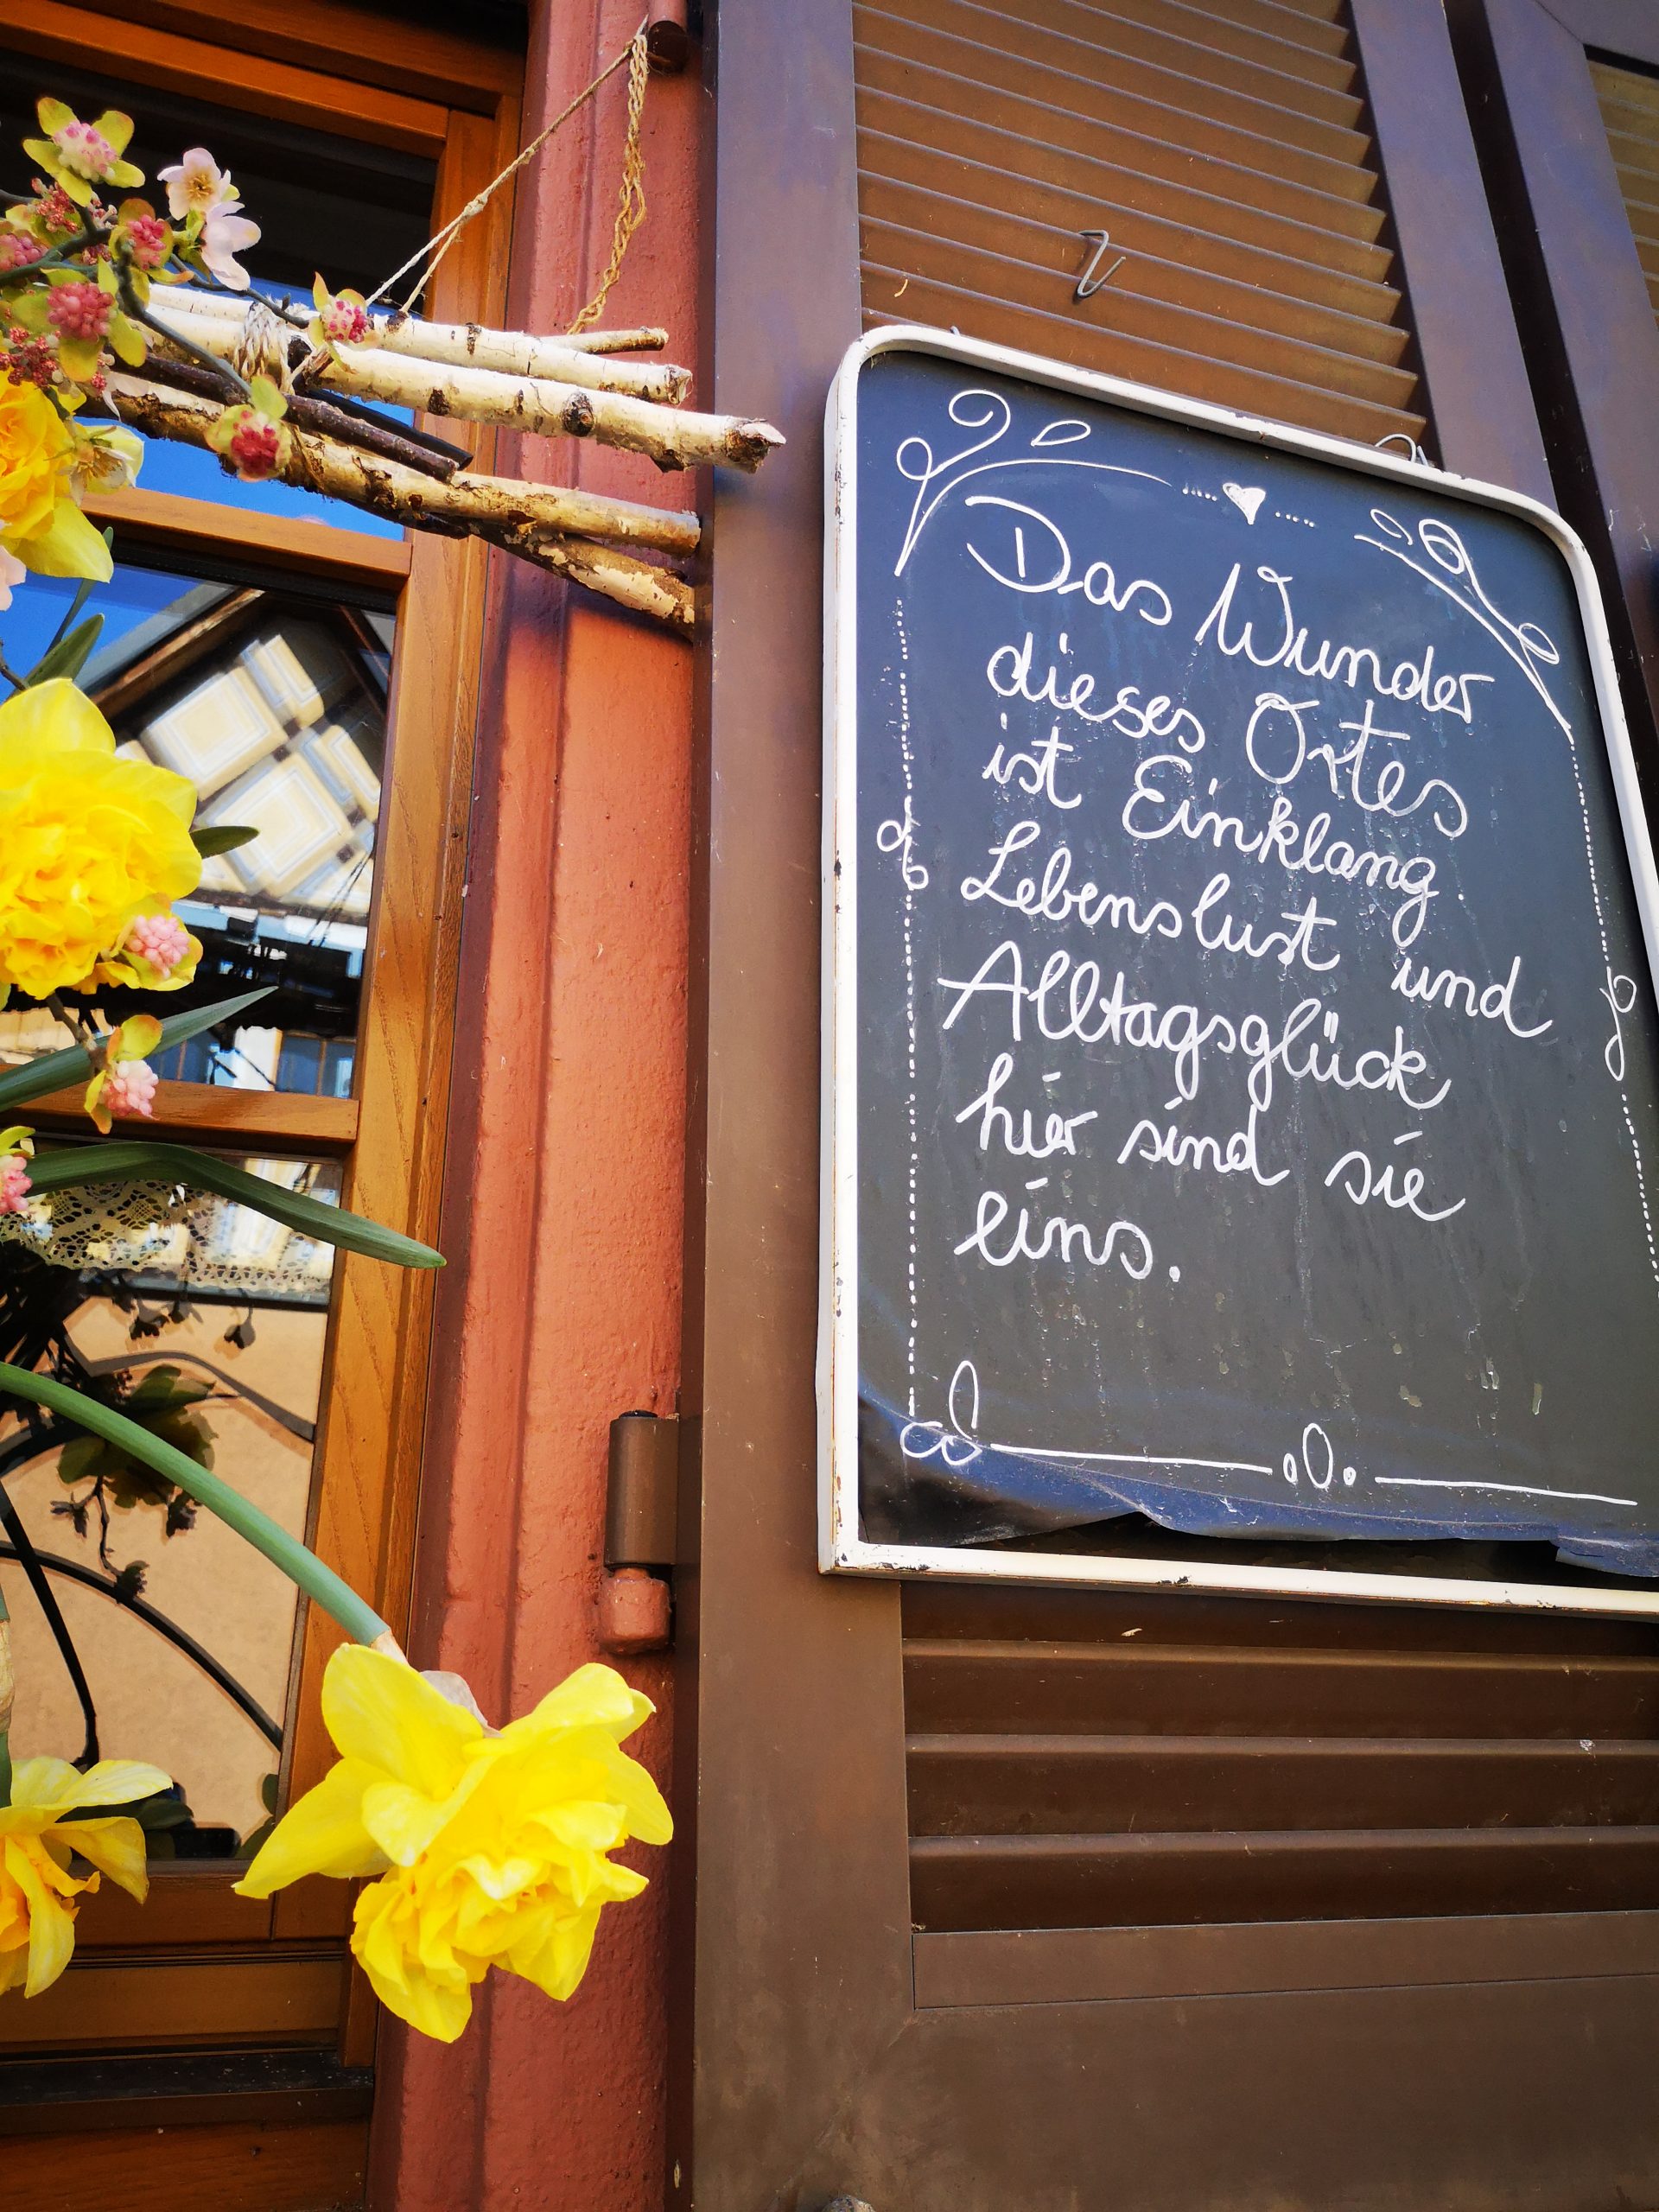 Das Wunder
dieses Ortes
ist Einklang.
Lebenslust und
Alltagsglück
hier sind sie
eins.